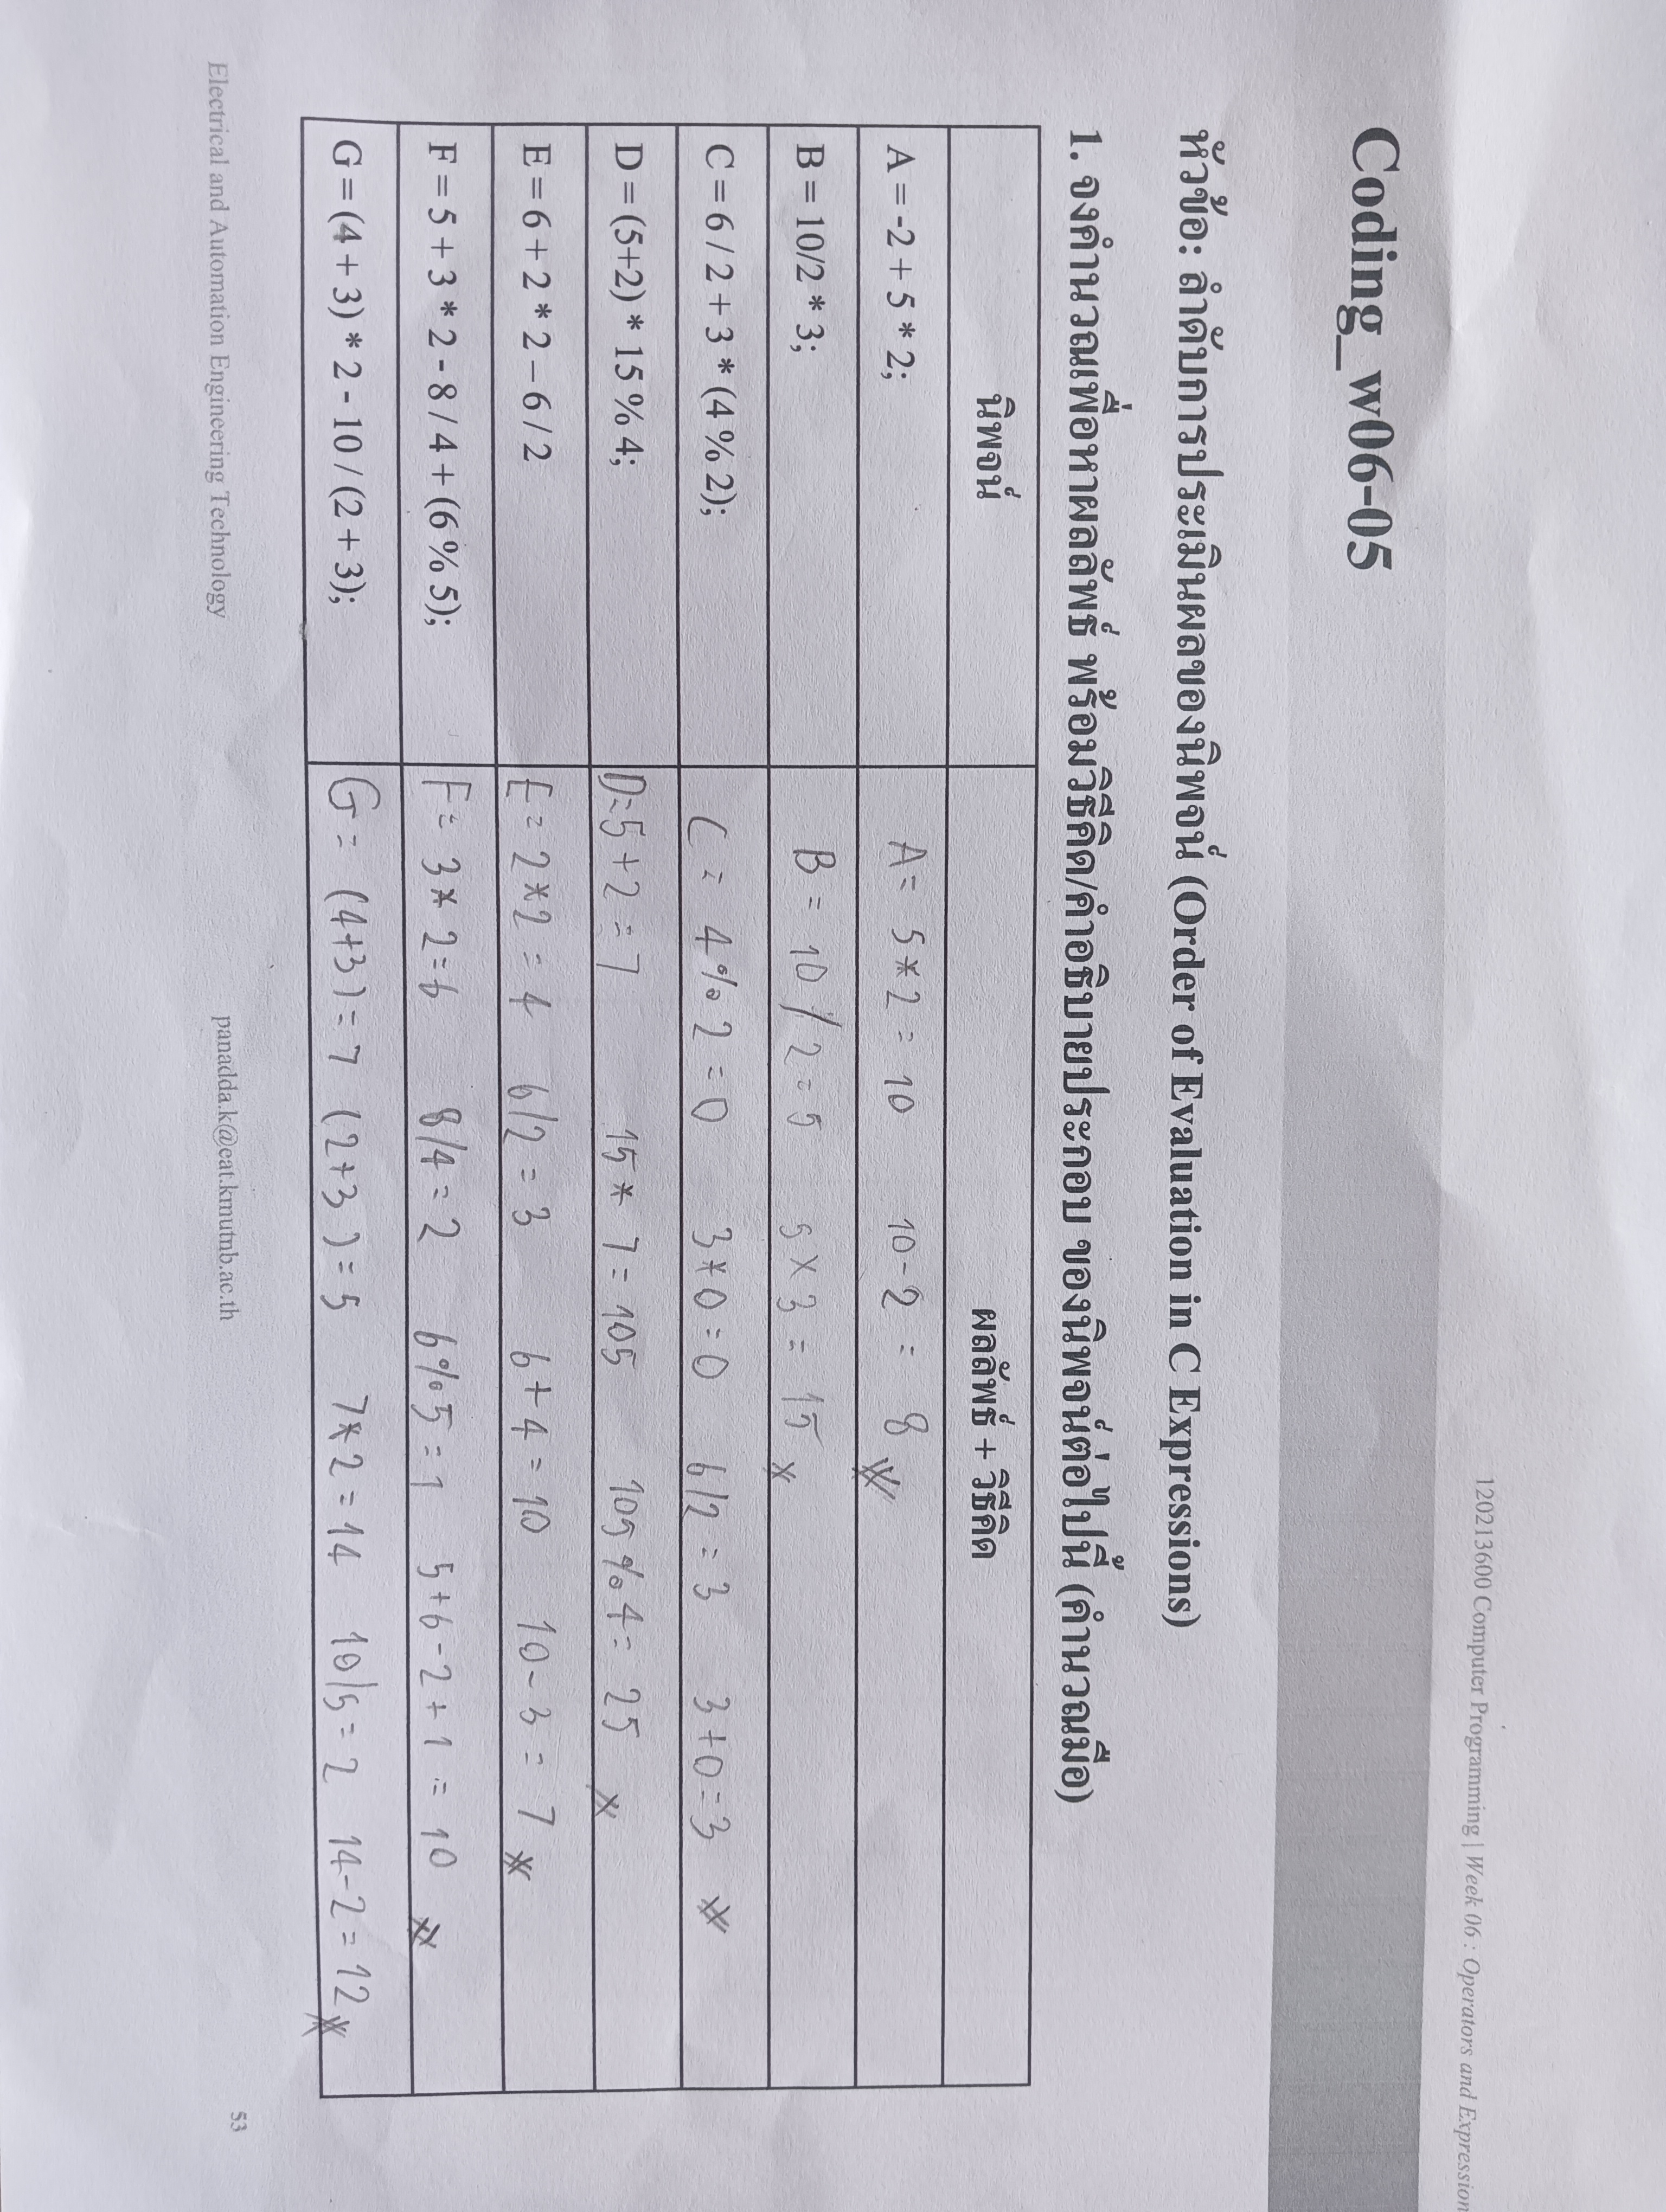 120213600 Computer Programming | Week 06 : Operators and Expression
Coding_w06-05
หัวข้อ: ลำดับการประเมินผลของนิพจน์ (Order of Evaluation in C Expressions)
1. จงคำนวณเพื่อหาผลลัพธ์ พร้อมวิธีคิด/คำอธิบายประกอบ ของนิพจน์ต่อไปนี้ (คำนวณมือ)
นิพจน์ ผลลัพธ์ + วิธีคิด
A = -2 + 5 * 2; A = 5 * 2 = 10 10 - 2 = 8
B = 10/2 * 3; B = 10 / 2 = 5 5 × 3 = 15
C = 6 / 2 + 3 * (4 % 2); C = 4 % 2 = 0 3 * 0 = 0 6/2 = 3 3 + 0 = 3
D = (5+2) * 15 % 4; D = 5 + 2 = 7 15 * 7 = 105 105 % 4 = 25
E = 6 + 2 * 2 – 6 / 2 E = 2 * 2 = 4 6/2 = 3 6 + 4 = 10 10 - 3 = 7
F = 5 + 3 * 2 - 8 / 4 + (6 % 5); F = 3 * 2 = 6 8/4 = 2 6 % 5 = 1 5 + 6 - 2 + 1 = 10
G = (4 + 3) * 2 - 10 / (2 + 3); G = (4+3) = 7 (2+3) = 5 7 * 2 = 14 10/5 = 2 14 - 2 = 12
Electrical and Automation Engineering Technology panadda.k@eat.kmutnb.ac.th 53